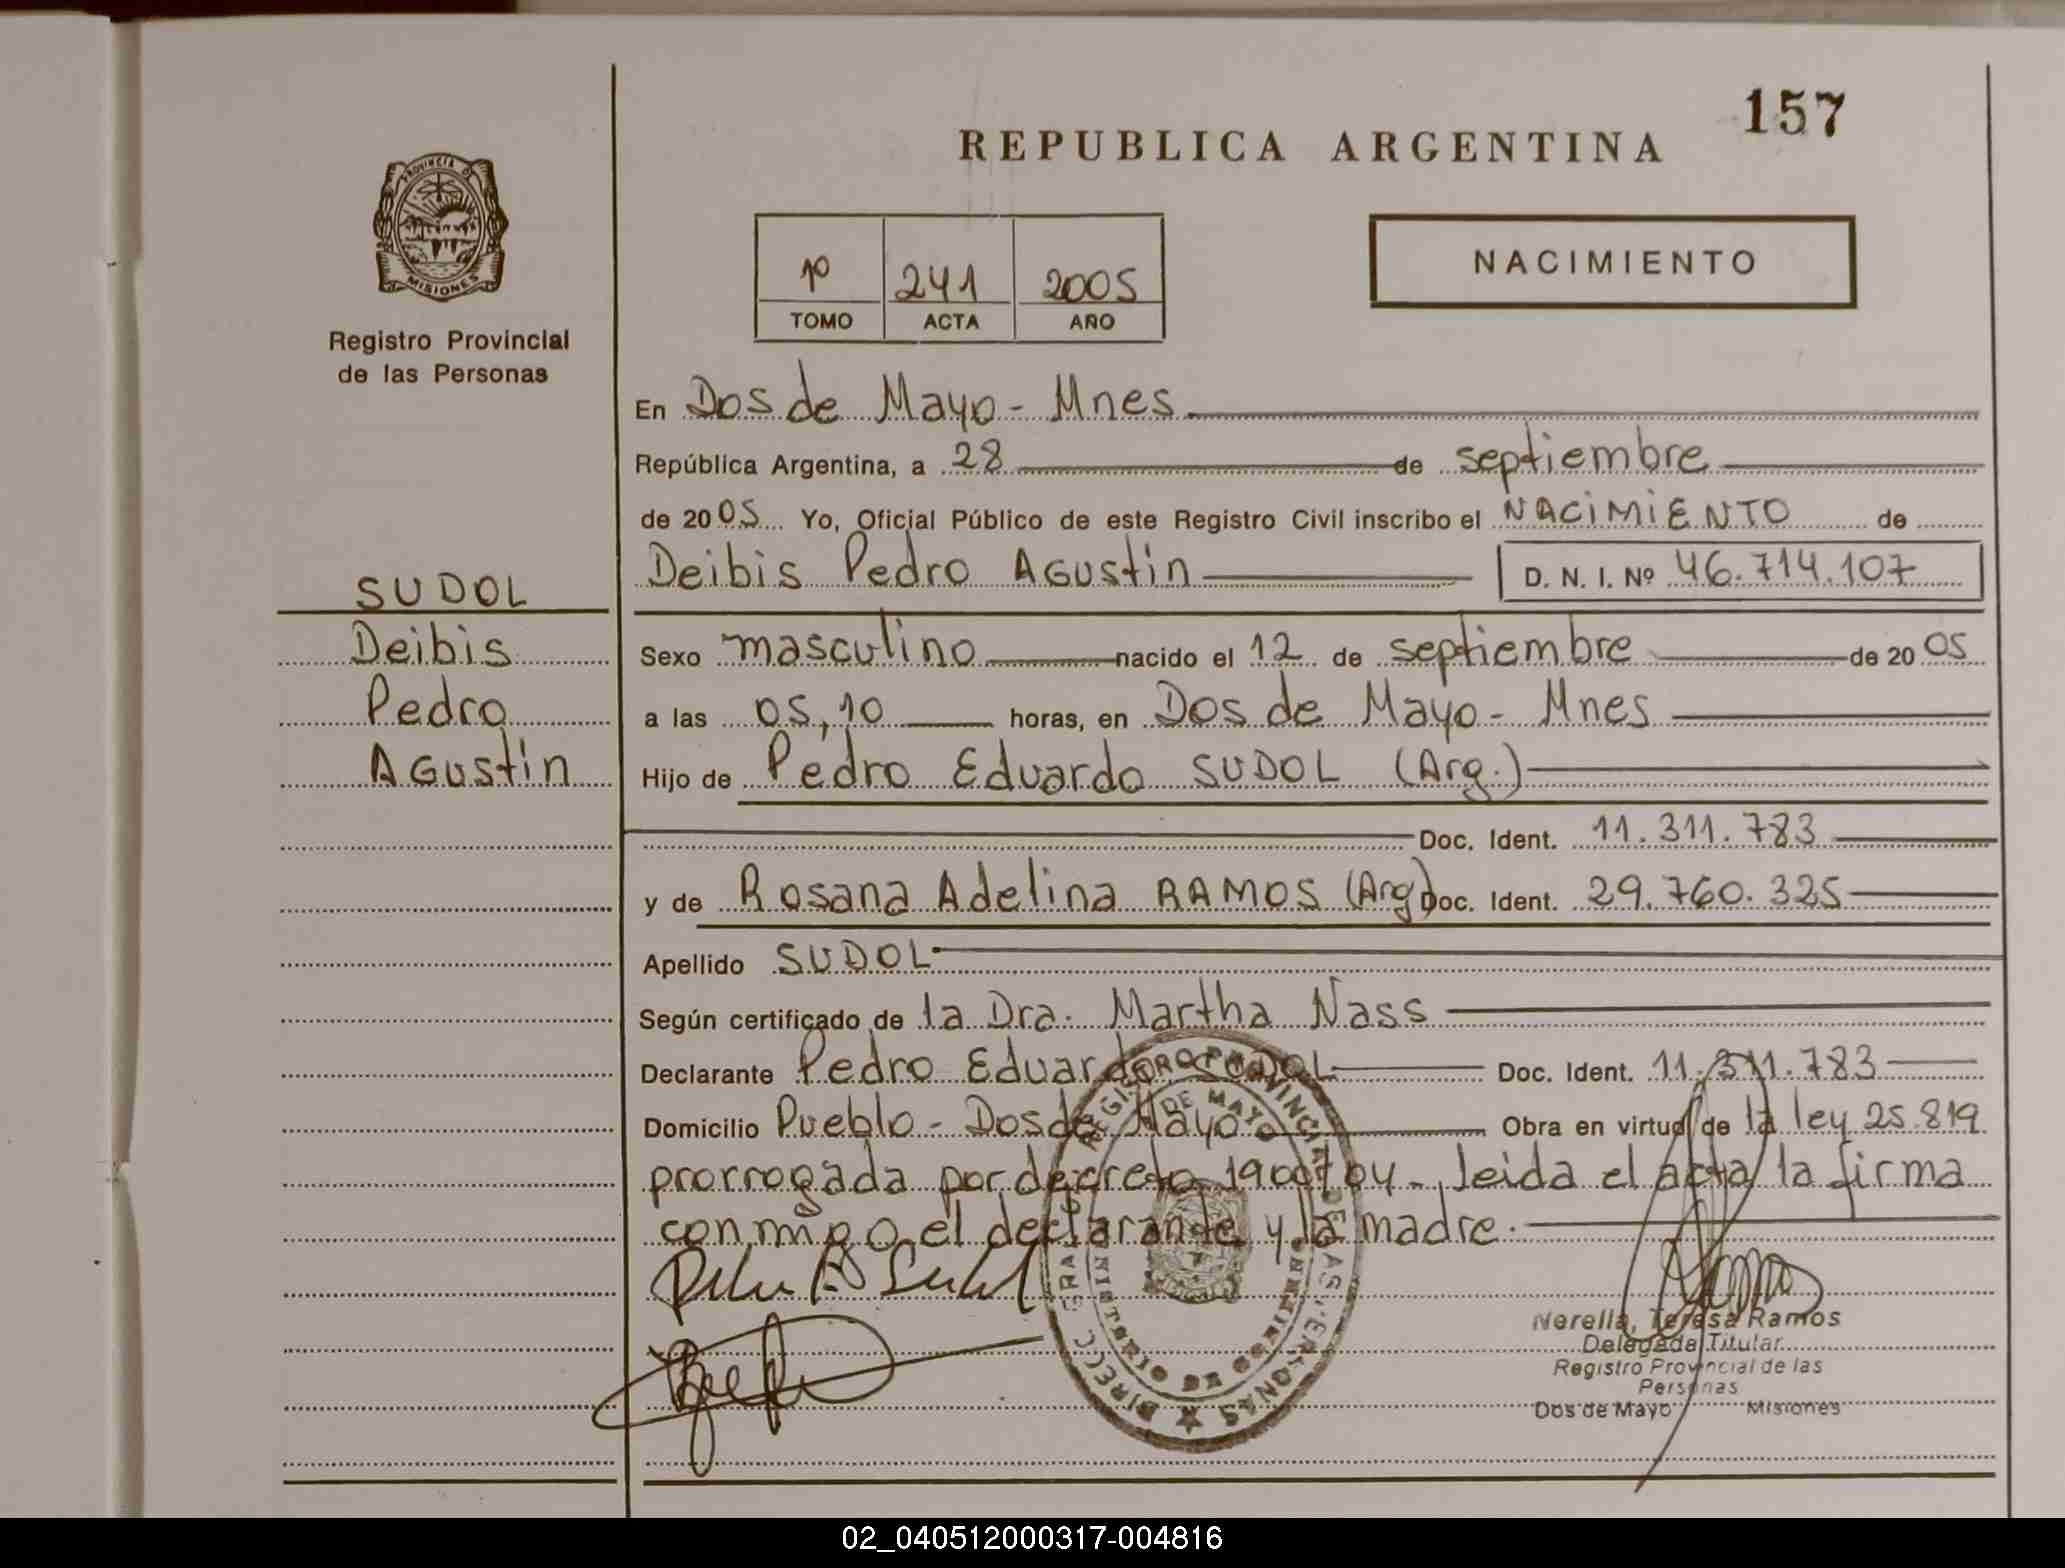 157
REPUBLICA ARGENTINA
PROVINCIA DE
MISIONES
Registro Provincial
de las Personas
1º 241 2005
TOMO ACTA AÑO
NACIMIENTO
En Dos de Mayo - Mnes
República Argentina, a 28 de septiembre
de 2005 Yo, Oficial Público de este Registro Civil inscribo el NACIMIENTO de
Deibis Pedro Agustin D. N. I. Nº 46.714.107
SUDOL
Deibis
Pedro
Agustin
Sexo masculino nacido el 12 de septiembre de 2005
a las 05,10 horas, en Dos de Mayo - Mnes
Hijo de Pedro Eduardo SUDOL (Arg.)
Doc. Ident. 11.311.783
y de Rosana Adelina RAMOS (Arg) Doc. Ident. 29.760.325
Apellido SUDOL
Según certificado de la Dra. Martha Nass
Declarante Pedro Eduardo SUDOL Doc. Ident. 11.311.783
Domicilio Pueblo - Dos de Mayo Obra en virtud de la ley 25.819
prorrogada por decreto 1900/04 - leida el acta la firma
conmigo el declarante y la madre.
DIRECC GRAL REGISTRO PROVINCIAL DE LAS PERSONAS
DE MAYO
MINISTERIO DE GOBIERNO
Nerella, Teresa Ramos
Delegada Titular
Registro Provincial de las
Personas
Dos de Mayo Misiones
02_040512000317-004816